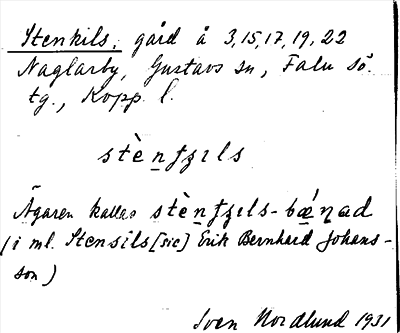 Stenkils, gård å 3,15,17,19,22
Naglarby, Gustavs sn, Falu sö.
tg., Kopp. l.
stènʃʒıls
Ägaren kallas stènʃʒıls-bǽṇad
(i ml. Stensils [sic] Erik Bernhard Johans-
son)
Sven Nordlund 1931